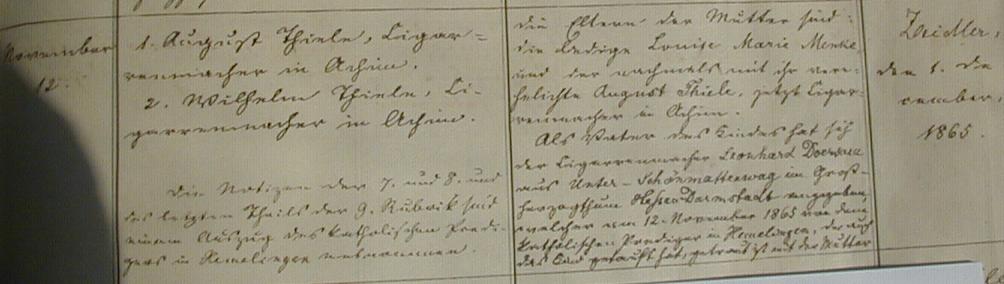 November
12.
1. August Thiele, Cigar=
renmacher in Achim.
2. Wilhelm Thiele, Ci-
garrenmacher in Achim.
Die Notizen der 7. und 8. und
des letzten Theils der 9. Rubrik sind
einem Auszug des katholischen Predi-
gers in Hemelingen entnommen.
die Eltern der Mutter sind:
die ledige Louise Marie Menke
und der nachmals mit ihr vere-
helichte August Thiele, jetzt Cigar-
renmacher in Achim.
Als Vater des Kindes hat sich
der Cigarrenmacher Leonhard
aus Unter-Schönmattenwag im Groß-
herzogthum Hessen Darmstadt angegeben,
welcher am 12. November 1865 von dem
katholischen Prediger in Hemelingen, der auch
das Kind getauft hat, getraut ist mit der Mutter
Zeidler,
den 1. De
cember.
1865.